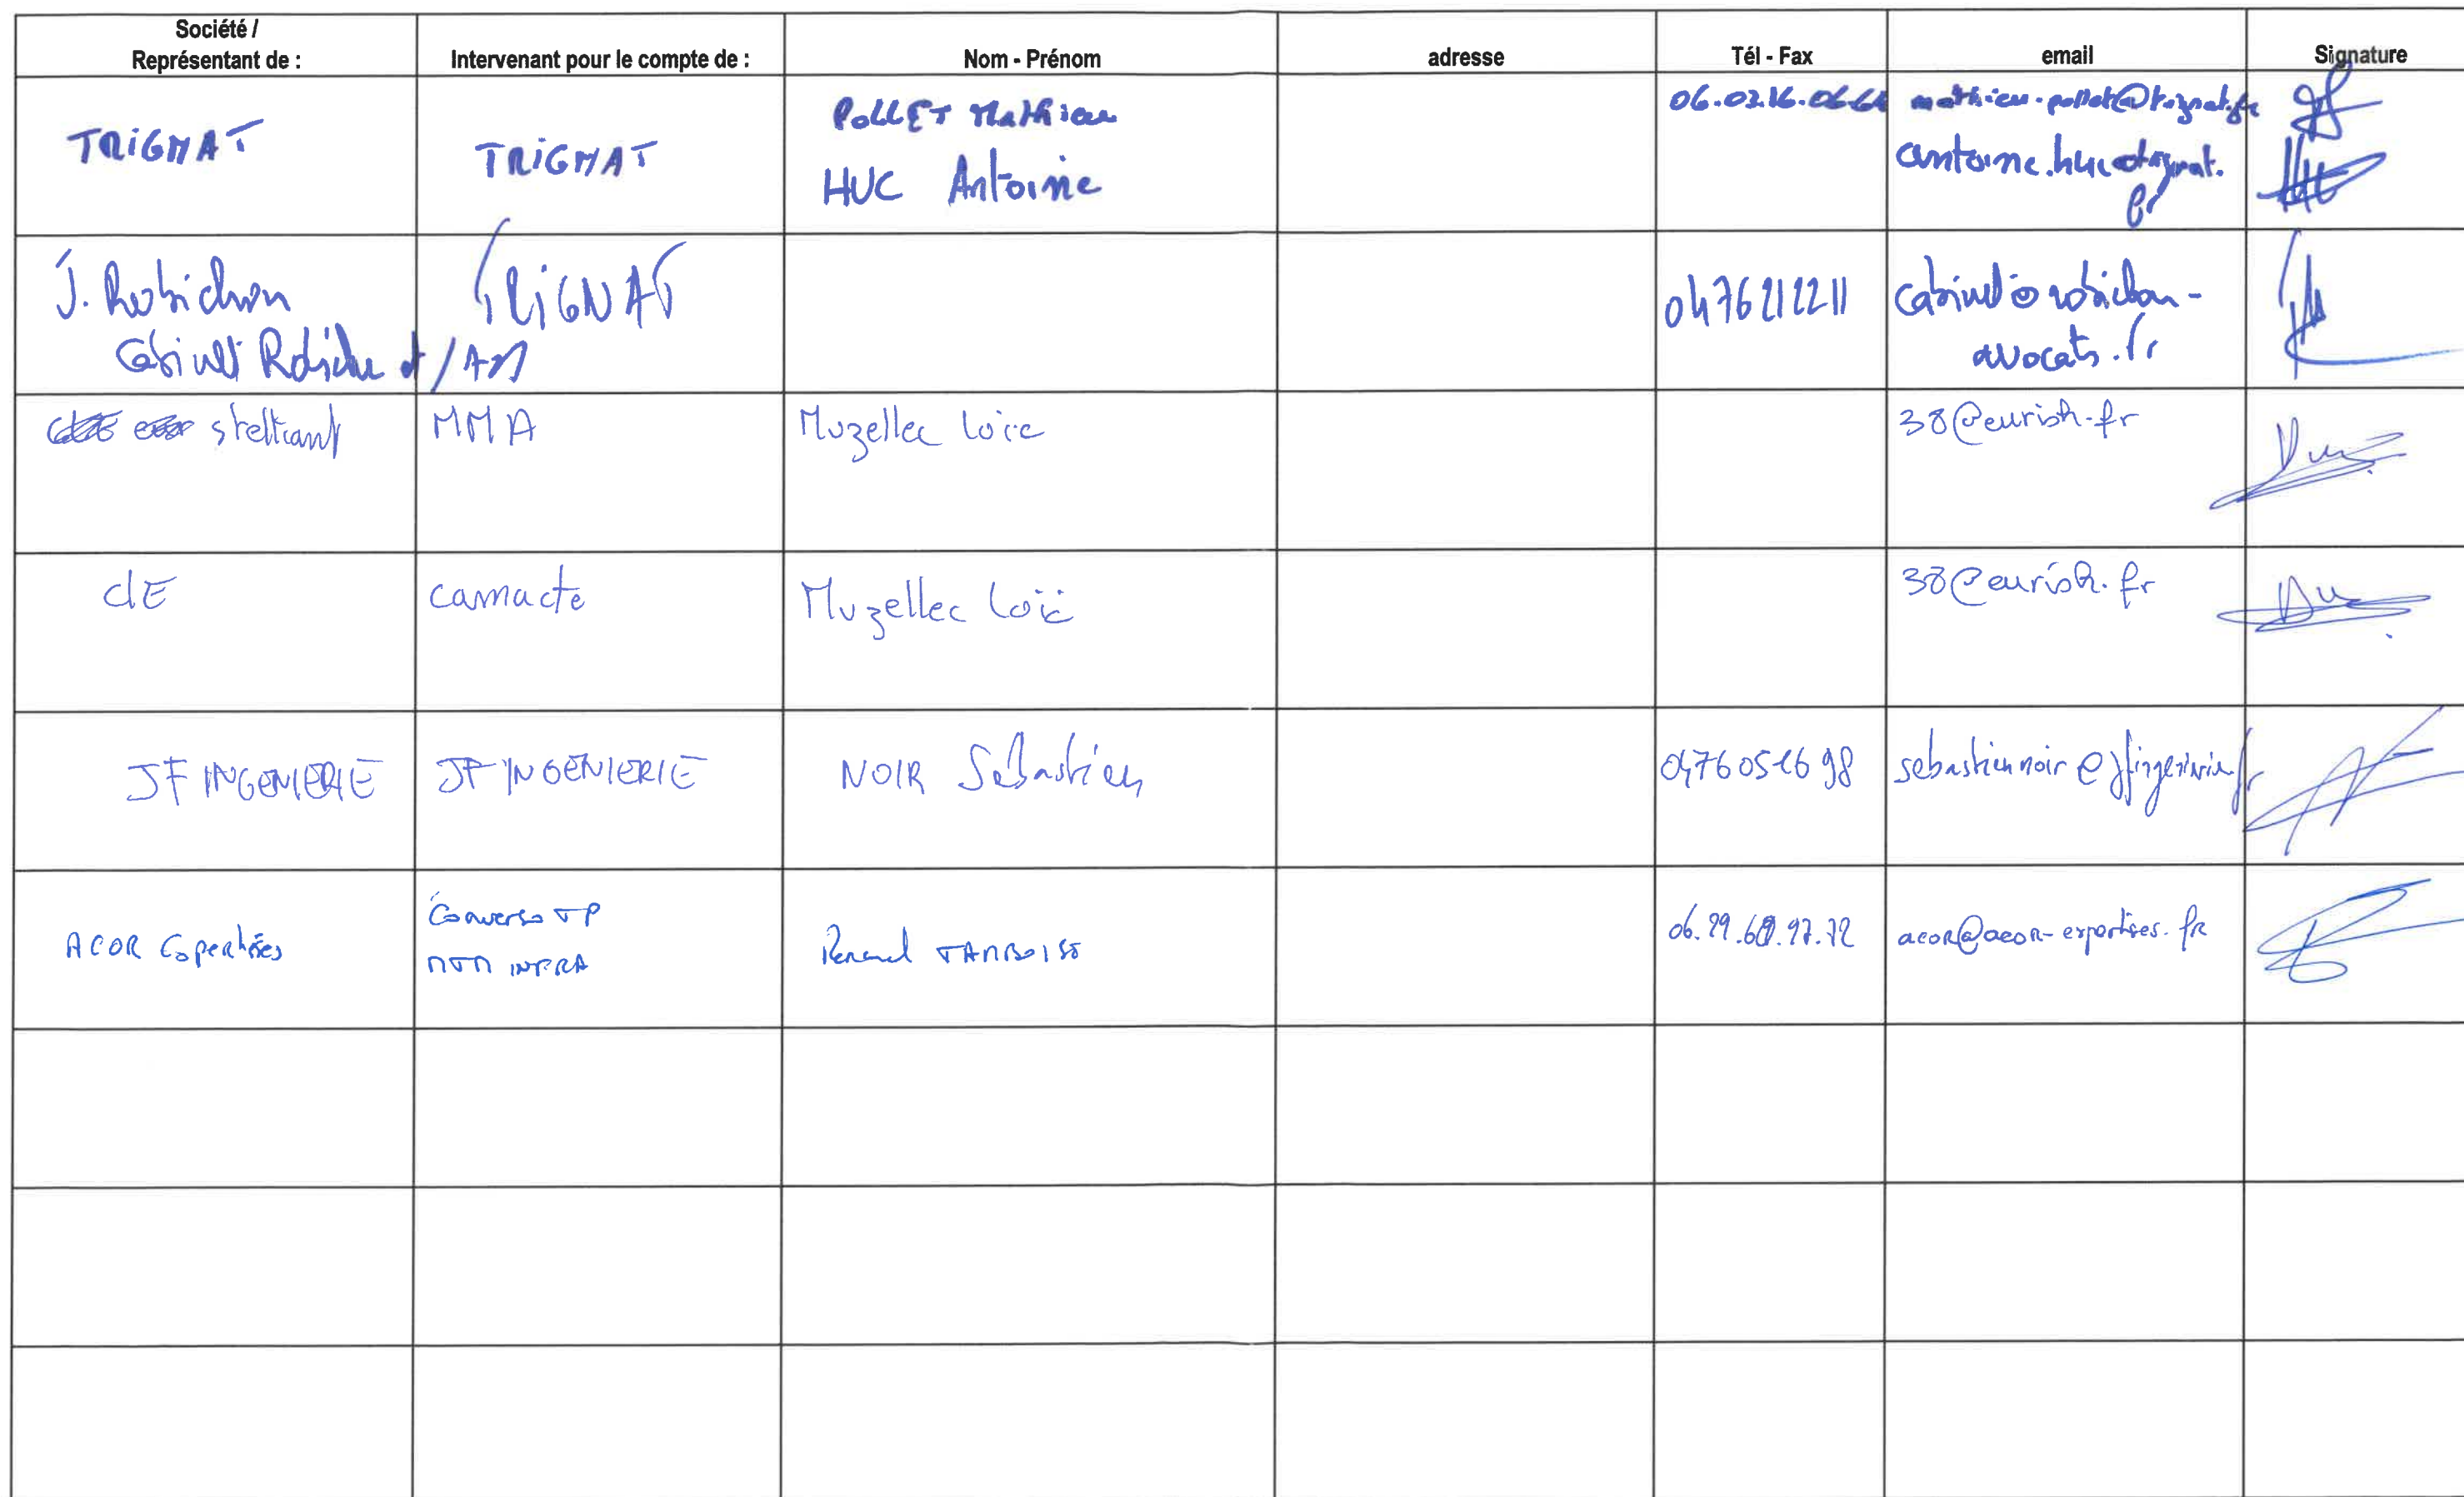 Société /
Représentant de :
Intervenant pour le compte de :
Nom - Prénom
adresse
Tél - Fax
email
Signature
TRIGNAT
TRIGNAT
POLLET Mathieu
HUC Antoine
06.02.16.06.64
mathieu.pollet@trignat.fr
antoine.huc@trignat.
fr
J. Robichon
Cabinet Robichon et /
TRIGNAT
0476212211
cabinet@robichon-
avocats.fr
MMA
Muzellec Loïc
38@eurisk.fr
CLE
camacte
Muzellec Loïc
38@eurisk.fr
JF INGENIERIE
JF INGENIERIE
NOIR Sébastien
0476051698
sebastien.noir@jfingenierie.fr
ACOR Expertises
Converso TP
MTM INFRA
Renaud
acor@acor-expertises.fr